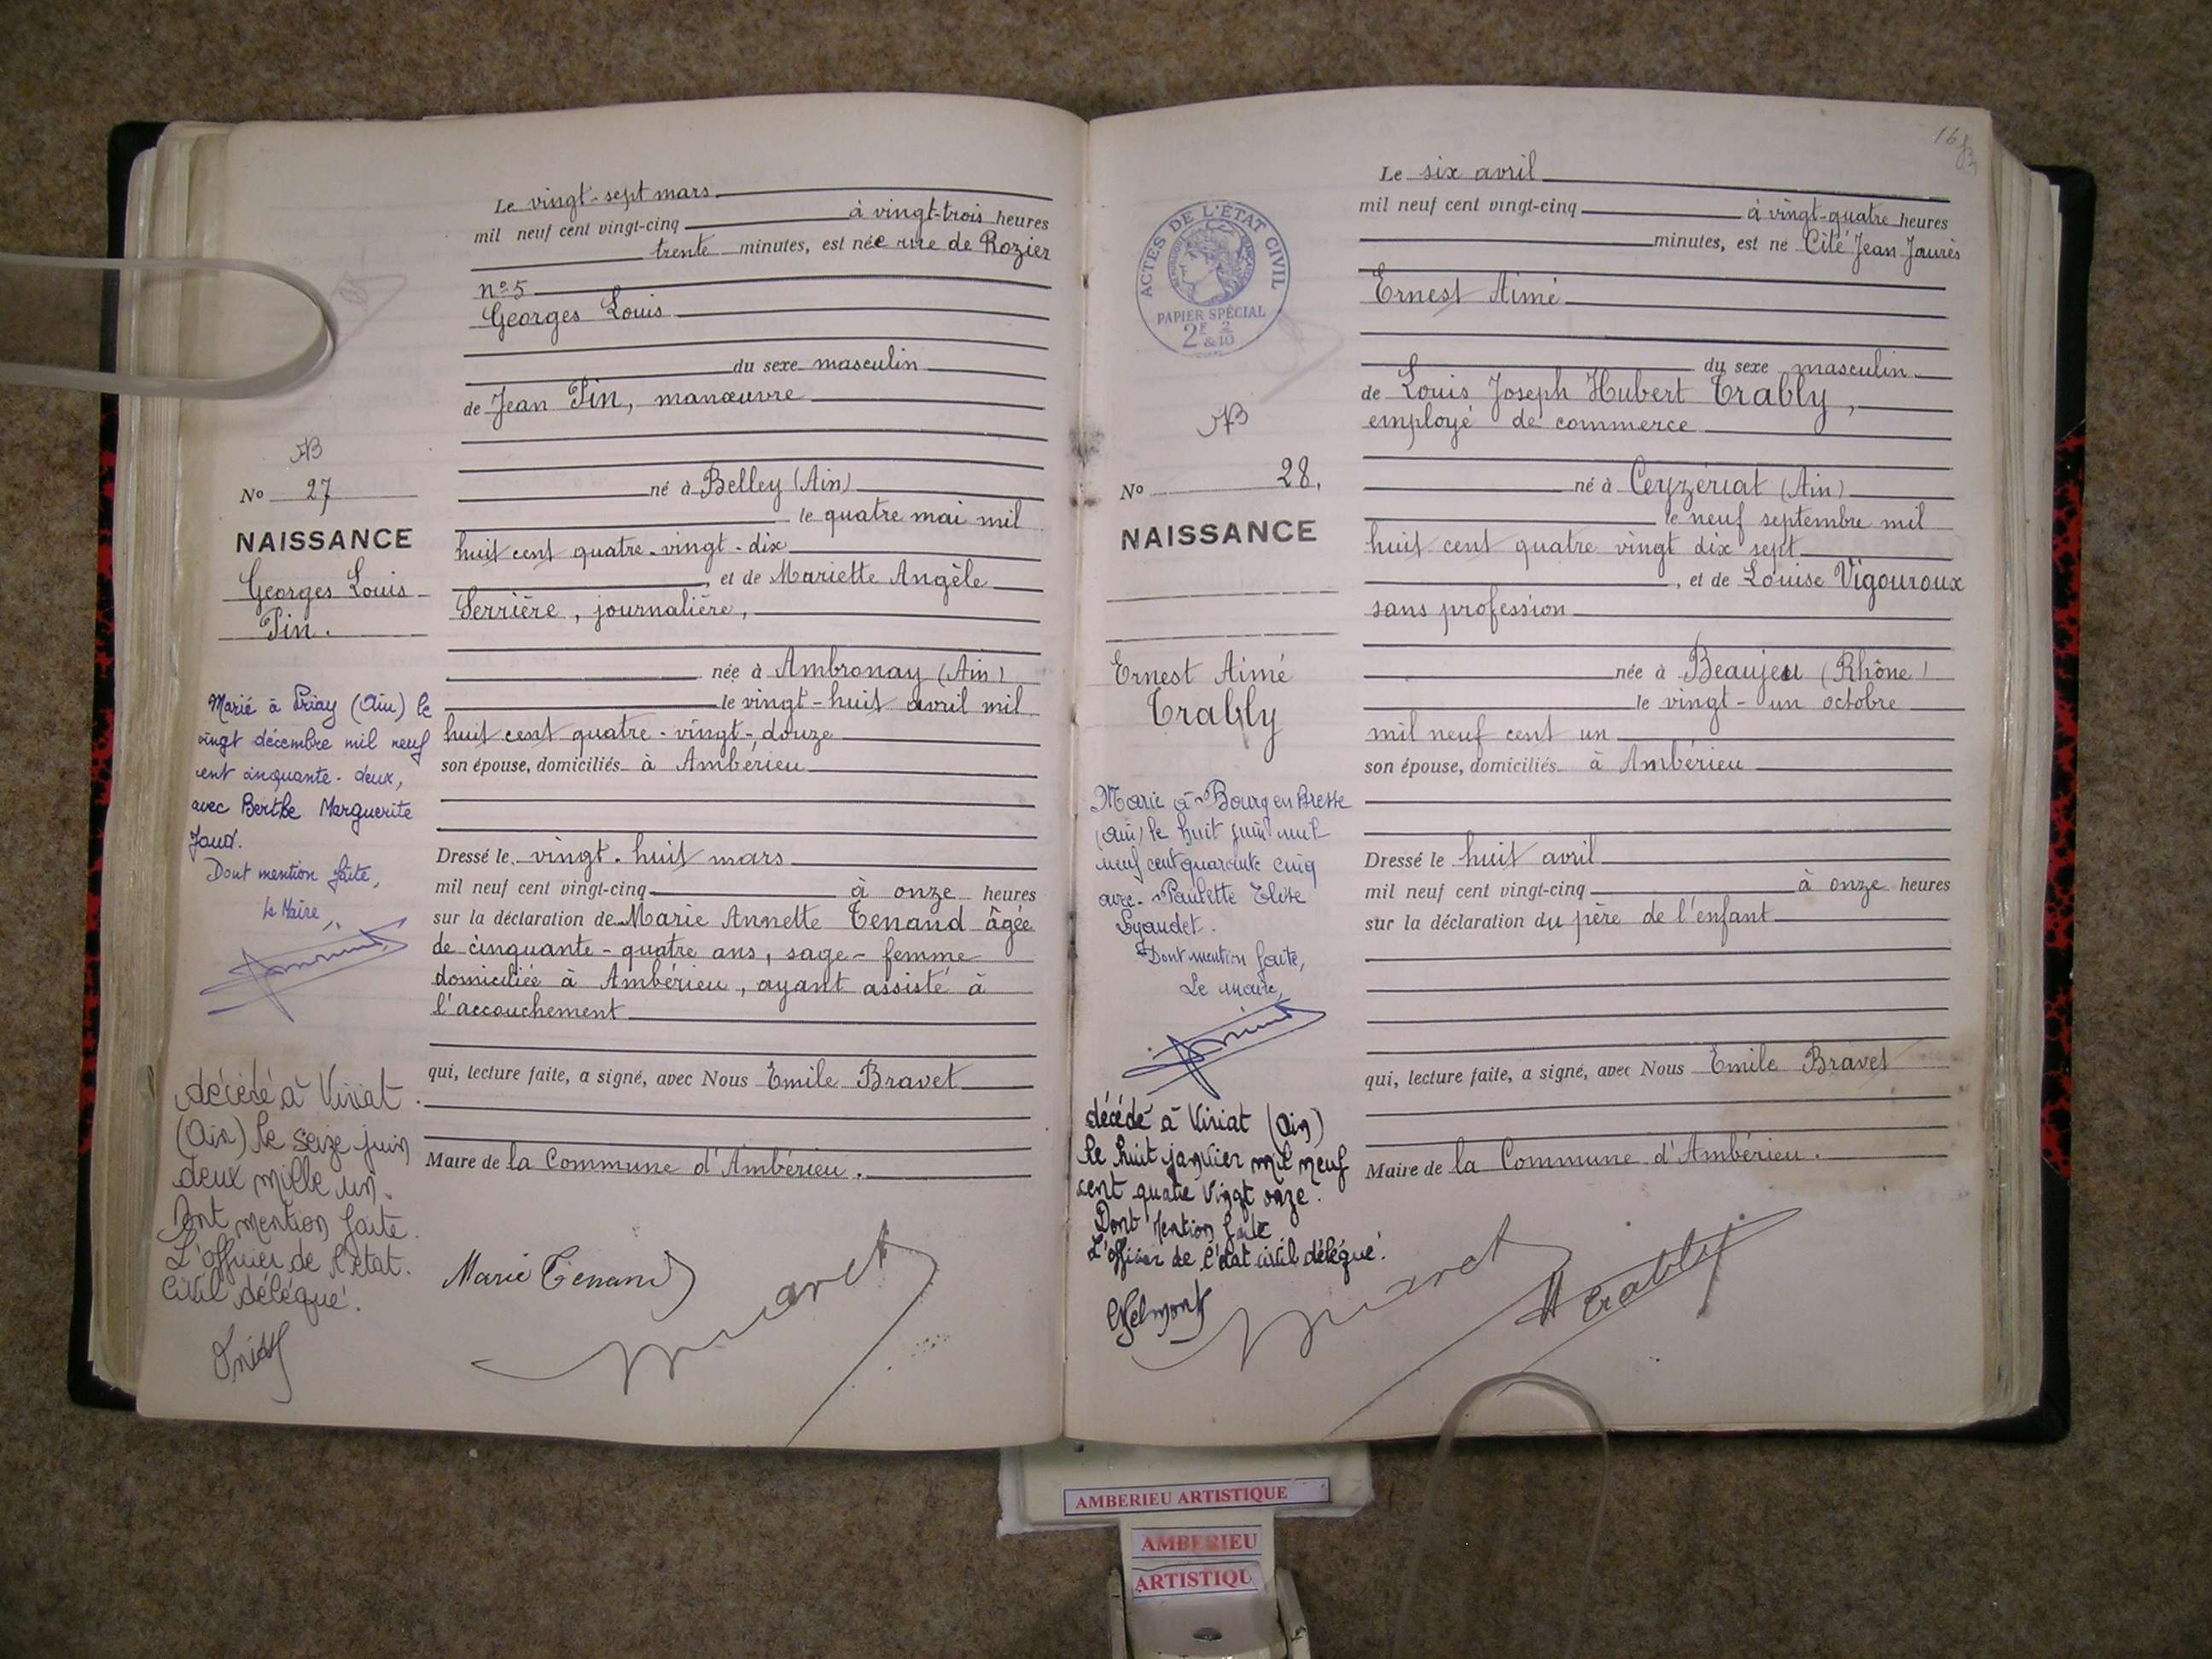 Le vingt-sept mars
mil neuf cent vingt-cinq à vingt-trois heures
trente minutes, est née rue de Rozier
n° 5
Georges Louis
du sexe masculin
de Jean Pin, manœuvre
né à Belley (Ain)
le quatre mai mil
huit cent quatre-vingt-dix
, et de Mariette Angèle
Serrière, journalière,
née à Ambronay (Ain)
le vingt-huit avril mil
huit cent quatre-vingt-douze
son épouse, domiciliés à Ambérieu
Dressé le vingt-huit mars
mil neuf cent vingt-cinq à onze heures
sur la déclaration de Marie Annette Tenand âgée
de cinquante-quatre ans, sage-femme
domiciliée à Ambérieu, ayant assisté à
l'accouchement
qui, lecture faite, a signé, avec Nous Emile Bravet
Maire de la Commune d'Ambérieu.
Marie Tenand
AB
No 27
NAISSANCE
Georges Louis
Pin.
Marié à Priay (Ain) le
vingt décembre mil neuf
cent cinquante-deux,
avec Berthe Marguerite
Dont mention faite,
Le Maire,
décédé à Viriat
(Ain) le seize juin
deux mille un.
Dont mention faite.
L'officier de l'état.
Civil délégué.
16
Le six avril
mil neuf cent vingt-cinq à vingt-quatre heures
minutes, est né Cité Jean Jaurès
Ernest Aimé
du sexe masculin
de Louis Joseph Hubert Trably,
employé de commerce
né à Ceyzériat (Ain)
le neuf septembre mil
huit cent quatre vingt dix sept
, et de Louise Vigouroux
sans profession
née à Beaujeu (Rhône)
le vingt-un octobre
mil neuf cent un
son épouse, domiciliés à Ambérieu
Dressé le huit avril
mil neuf cent vingt-cinq à onze heures
sur la déclaration du père de l'enfant
qui, lecture faite, a signé, avec Nous Emile Bravet
Maire de la Commune d'Ambérieu.
Trably
ACTES DE L'ÉTAT CIVIL
PAPIER SPÉCIAL
2F & 2/10
AB
No 28.
NAISSANCE
Ernest Aimé
Trably
Marié à Bourg en Bresse
(Ain) le huit juin mil
neuf cent quarante cinq
avec Paulette Elise
Lyaudet.
Dont mention faite,
Le maire,
décédé à Viriat (Ain)
le huit janvier mil neuf
cent quatre vingt onze.
Dont Mention faite
L'officier de l'état civil délégué.
AMBERIEU ARTISTIQUE
AMBERIEU
ARTISTIQU